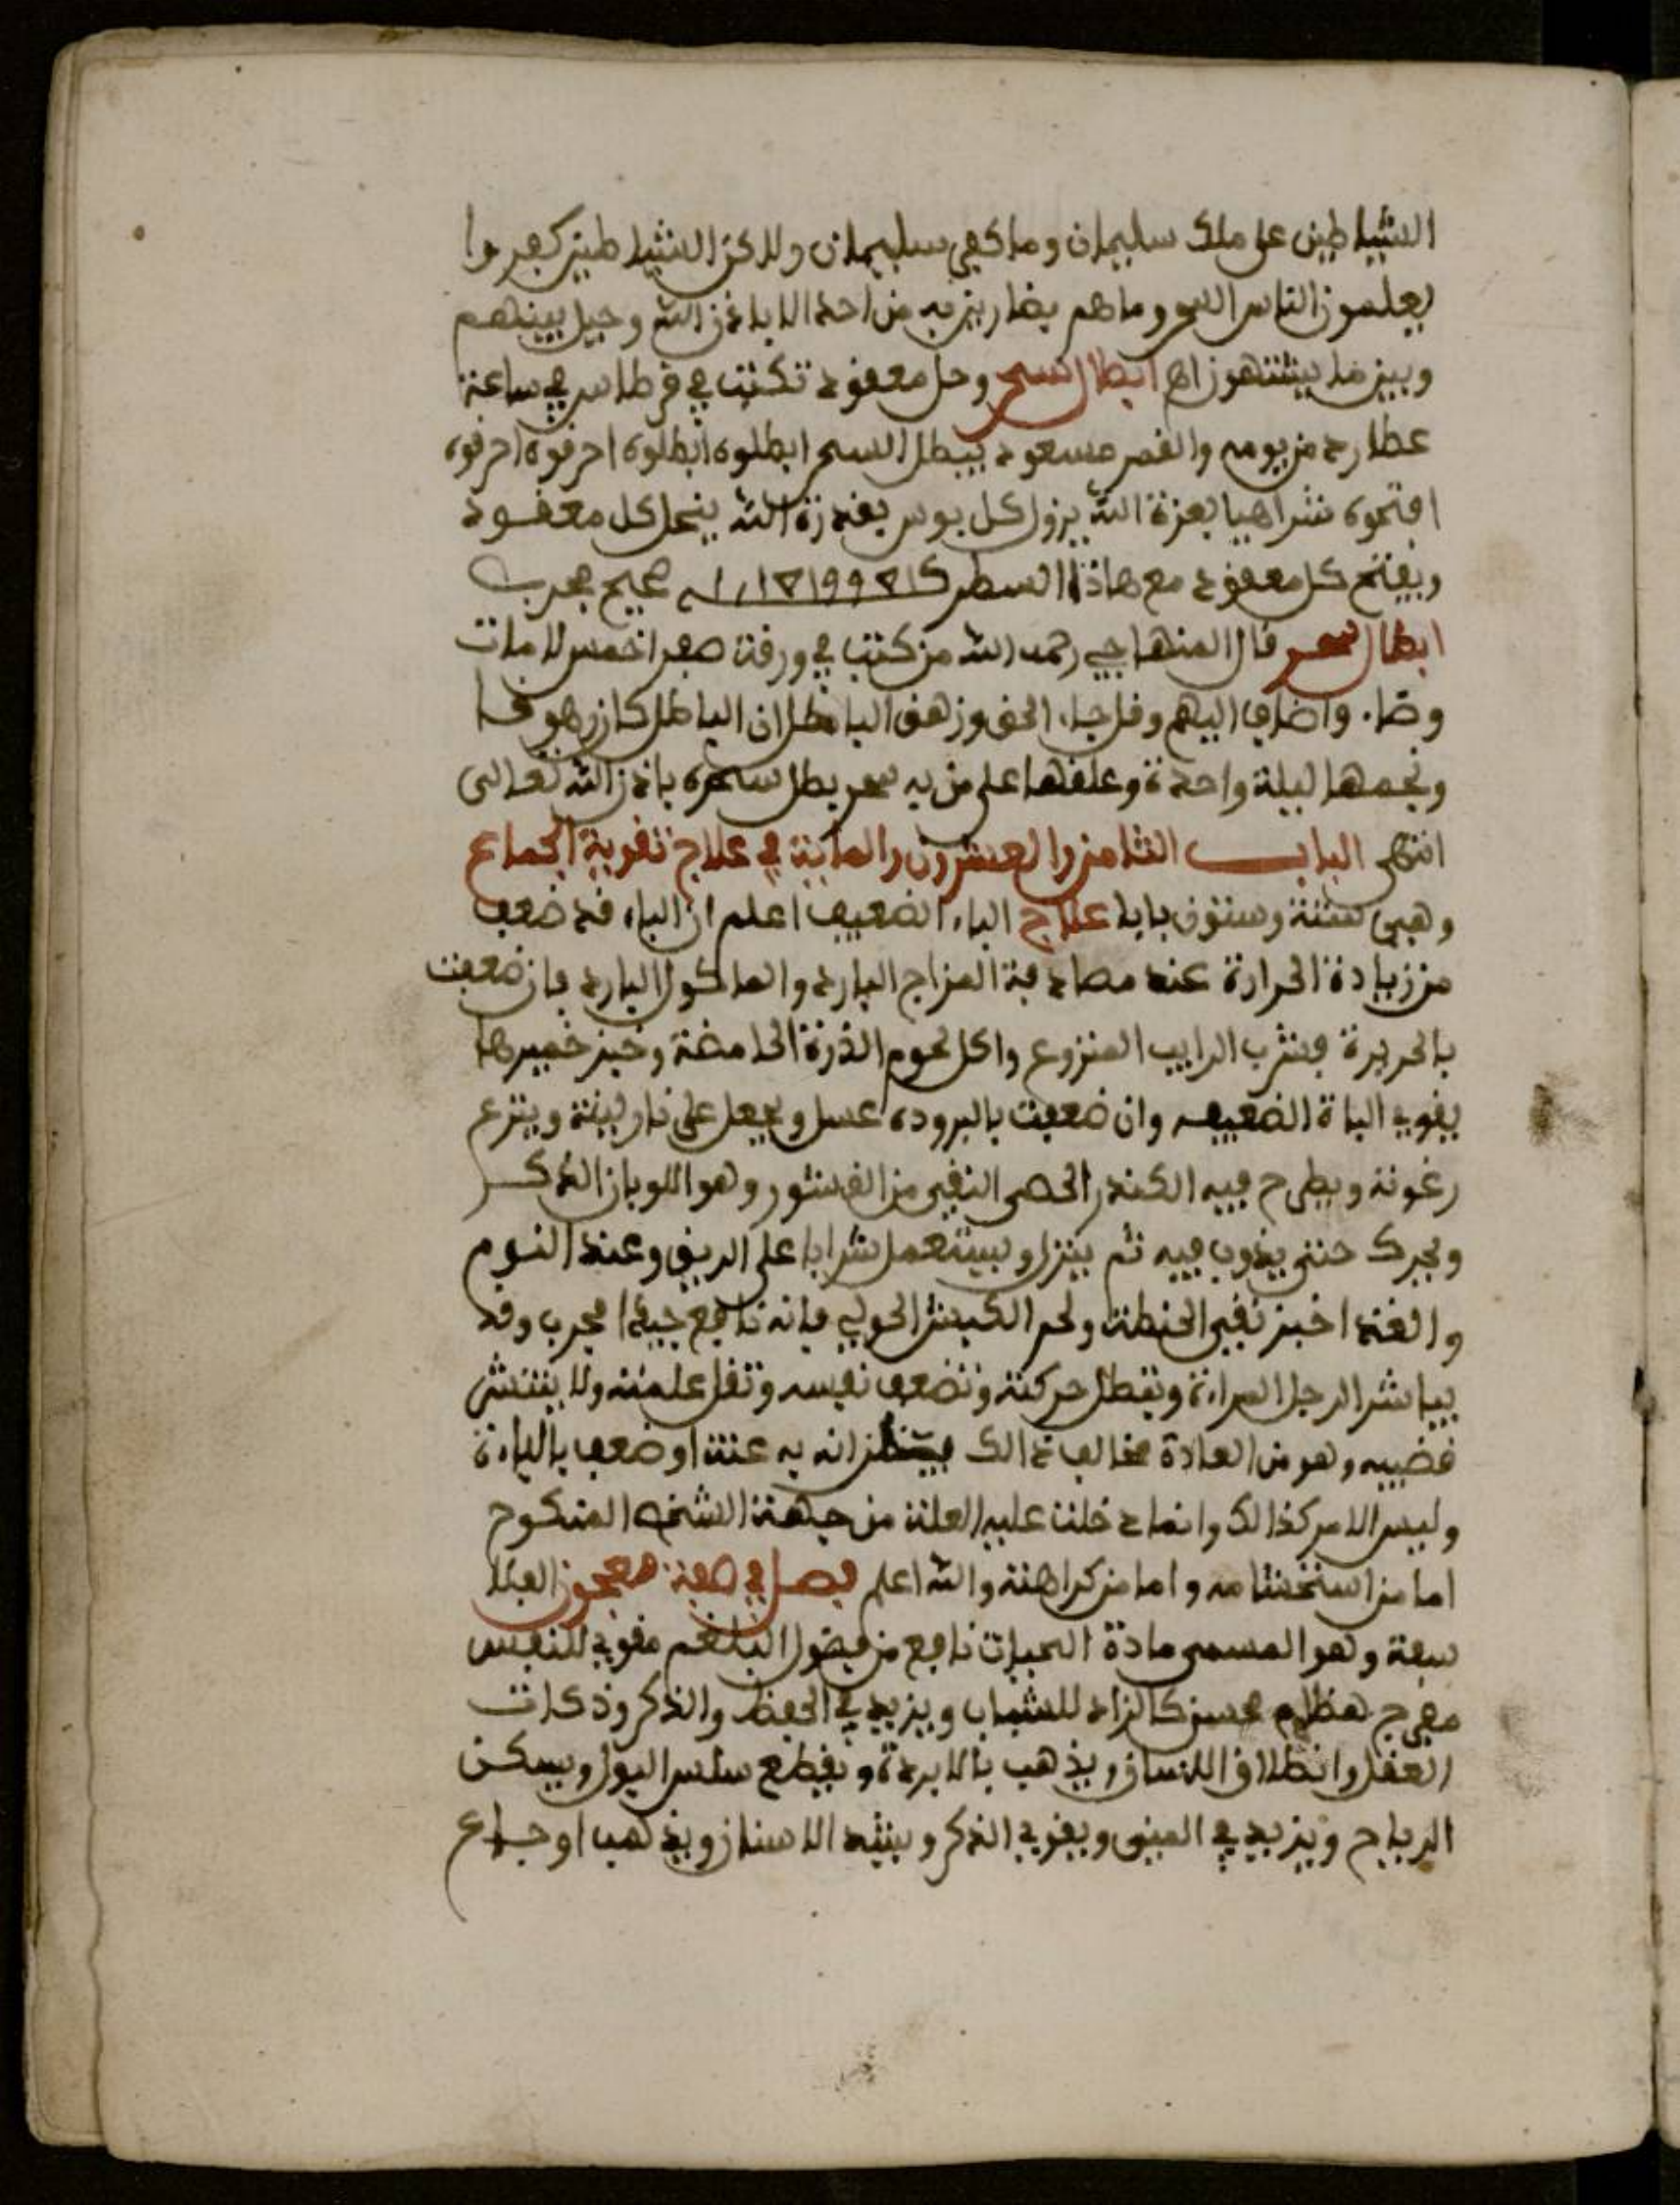 الشياطين على ملك سليمان وما كفر سليمان ولاكن الشياطين كفروا
يعلمون الناس السحر وما هم بضارين به من احد الا باذن الله وحيل بينهم
وبين ما يشتهون اهـ ابطال السحر وحل معقود تكتب في قرطاس في ساعة
عطارد من يومه والقمر مسعود يبطل السحر ابطلوه ابطلوه احرقوه احرقوه
افتحوه شراهيا بعزة الله يزول كل بوس بقدرة الله ينحل كل معقود
ويفتح كل معقود مع هاذا السطر صحيح مجرب
ابطال سحر قال الصنهاجي رحمه الله من كتب في ورقة صفرا خمس لامات
وطاء واضاف اليهم وقل جاء الحق وزهق الباطل ان الباطل كان زهوقا
ونجمها ليلة واحدة وعلقها على من به سحر بطل سحره باذن الله تعالى
انتهى الباب الثامن والعشرون والماية في علاج تقوية الجماع
وهي ستة وستون بابا علاج الباء الضعيف اعلم ان الباء قد ضعف
من زيادة الحرارة عند مصادفة المزاج البارد والماكول البارد فان ضعفت
بالحريرة فشرب الرايب المنزوع واكل لحوم الذرة الحامضة وخبز خميرها
يقوي الباة الضعيف وان ضعفت بالبرودة عسل ويجعل على نار لينة وينزع
رغوته ويطرح فيه الكندر الحصى النقي من القشور وهو اللوبان الذكر
ويحرك حتى يذوب فيه ثم ينزل ويستعمل شرابا على الريق وعند النوم
والغدا خبز نقي الحنطة ولحم الكبش الحولي فانه نافع جيدا مجرب وقد
يباشر الرجل المراة وتبطل حركته وتضعف نفسه وتقل علمته ولا ينتشر
قضيبه وهو من العادة مخالف ذالك فيظن انه به عنة او ضعف بالباءة
وليس الامر كذالك وانما دخلت عليه العلة من جهة الشخص المنكوح
اما من استخشامه واما من كراهته والله اعلم فصل في صفة معجون الفلا
سفة وهو المسمى مادة الحياة نافع من فضول البلغم مقوي للنفس
مفرح هظام محسن كالزاد للشباب ويزيد في الحفظ والذكر وذكات
العقل وانطلاق اللسان ويذهب بالابردة ويقطع سلس البول ويسكن
الرياح ويزيد في المني ويقوي الذكر ويشد الاسنان ويذهب اوجاع